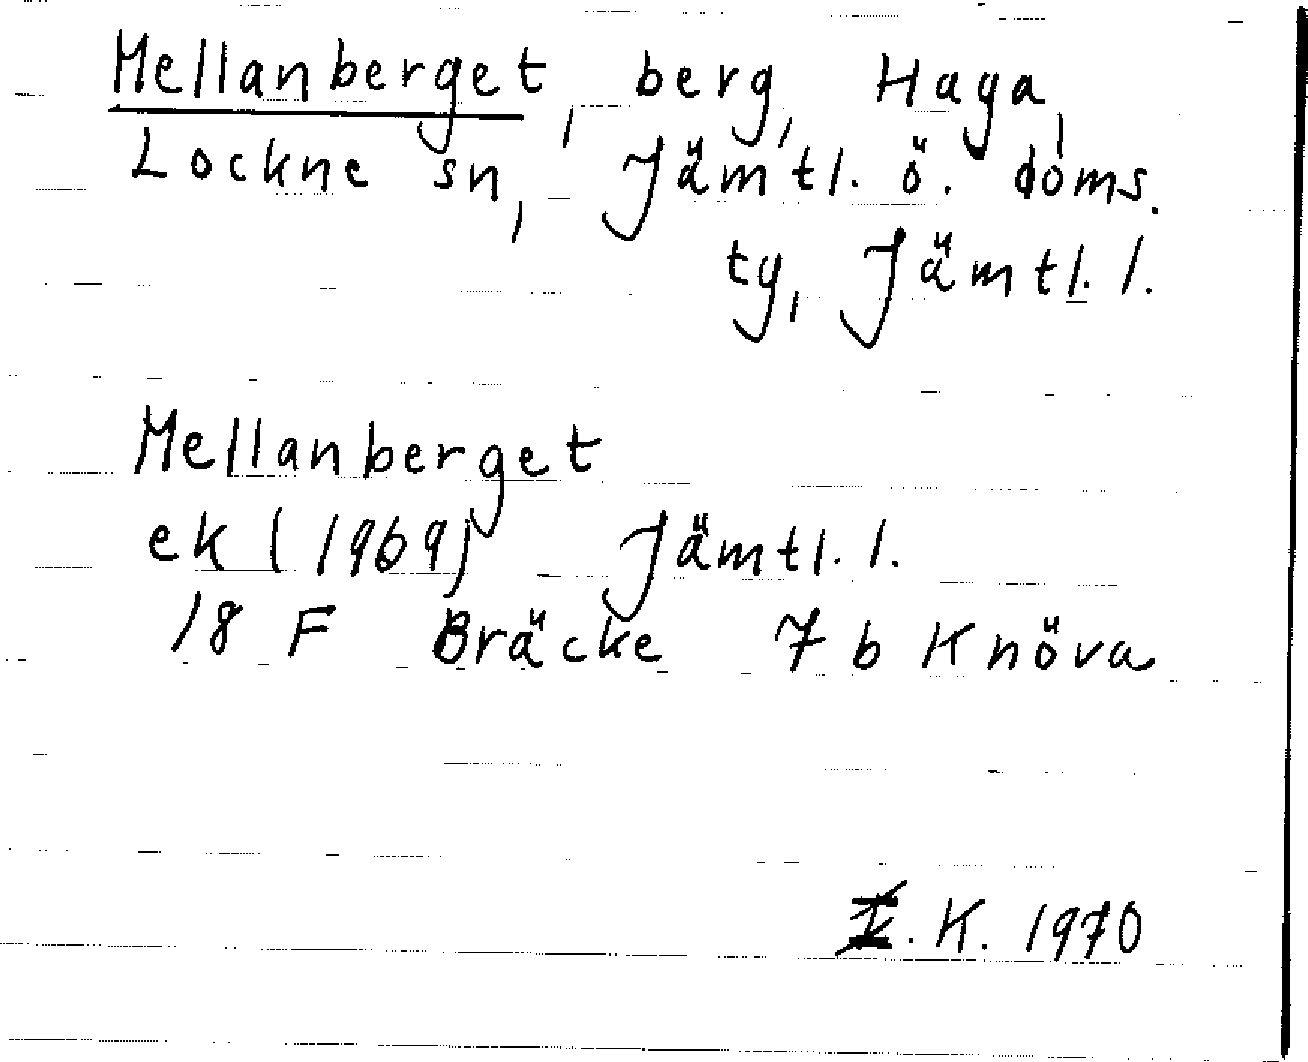 Mellanberget, berg, Haga,
Lockne sn, Jämtl. ö. doms.
ty, Jämtl. l.
Mellanberget
ek (1969) Jämtl. l.
18 F Bräcke 7 b Knöva
K. 1970